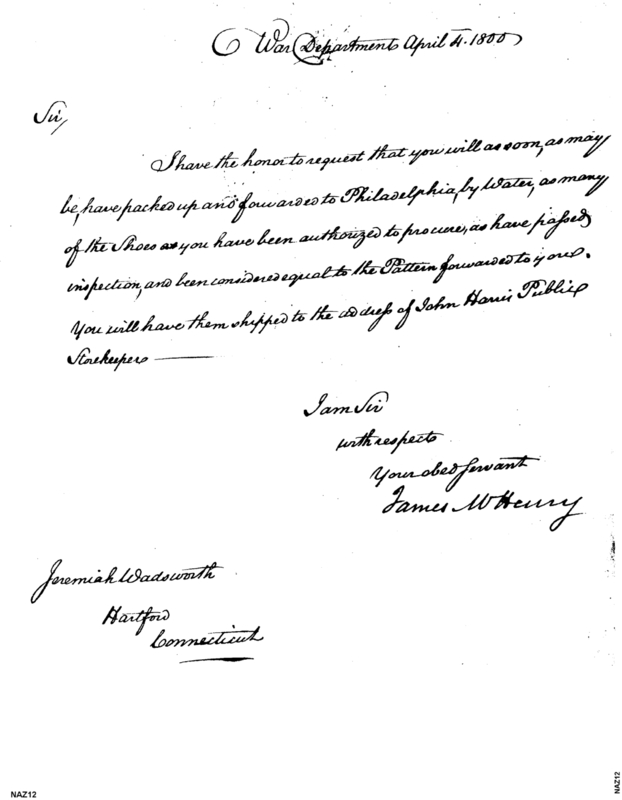 War Department April 4. 1800
Sir,
I have the honor to request that you will as soon, as may
be, have packed up and forwarded to Philadelphia, by Water, as many
of the Shoes as you have been authorized to procure, as have passed
inspection, and been considered equal to the Pattern forwarded to you.
You will have them shipped to the address of John Harris Public
Storekeeper
I am Sir
with respect
Your obed Servant
James McHenry
Jeremiah Wadsworth
Hartford
Connecticut
NAZ12
NAZ12